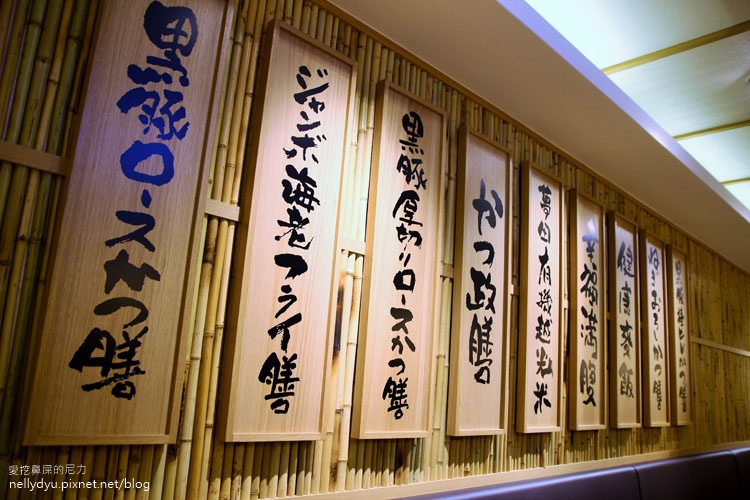 黒豚ロースかつ膳
ジャンボ海老フライ膳
黒豚厚切りロースかつ膳
かつ政膳
夢田有機越光米
幸福満腹
健康麦飯
ねぎおろしかつ膳
愛挖鼻屎的尼力
nellydyu.pixnet.net/blog